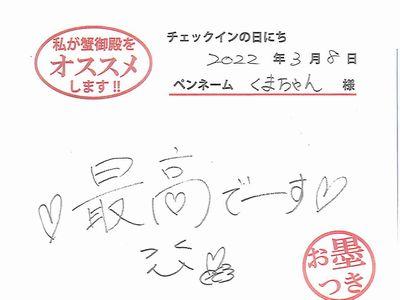 私が蟹御殿を
オススメ
します!!
チェックインの日にち
2022 年 3 月 8 日
ペンネーム くまちゃん 様
♡最高でーす♡
お墨
つき